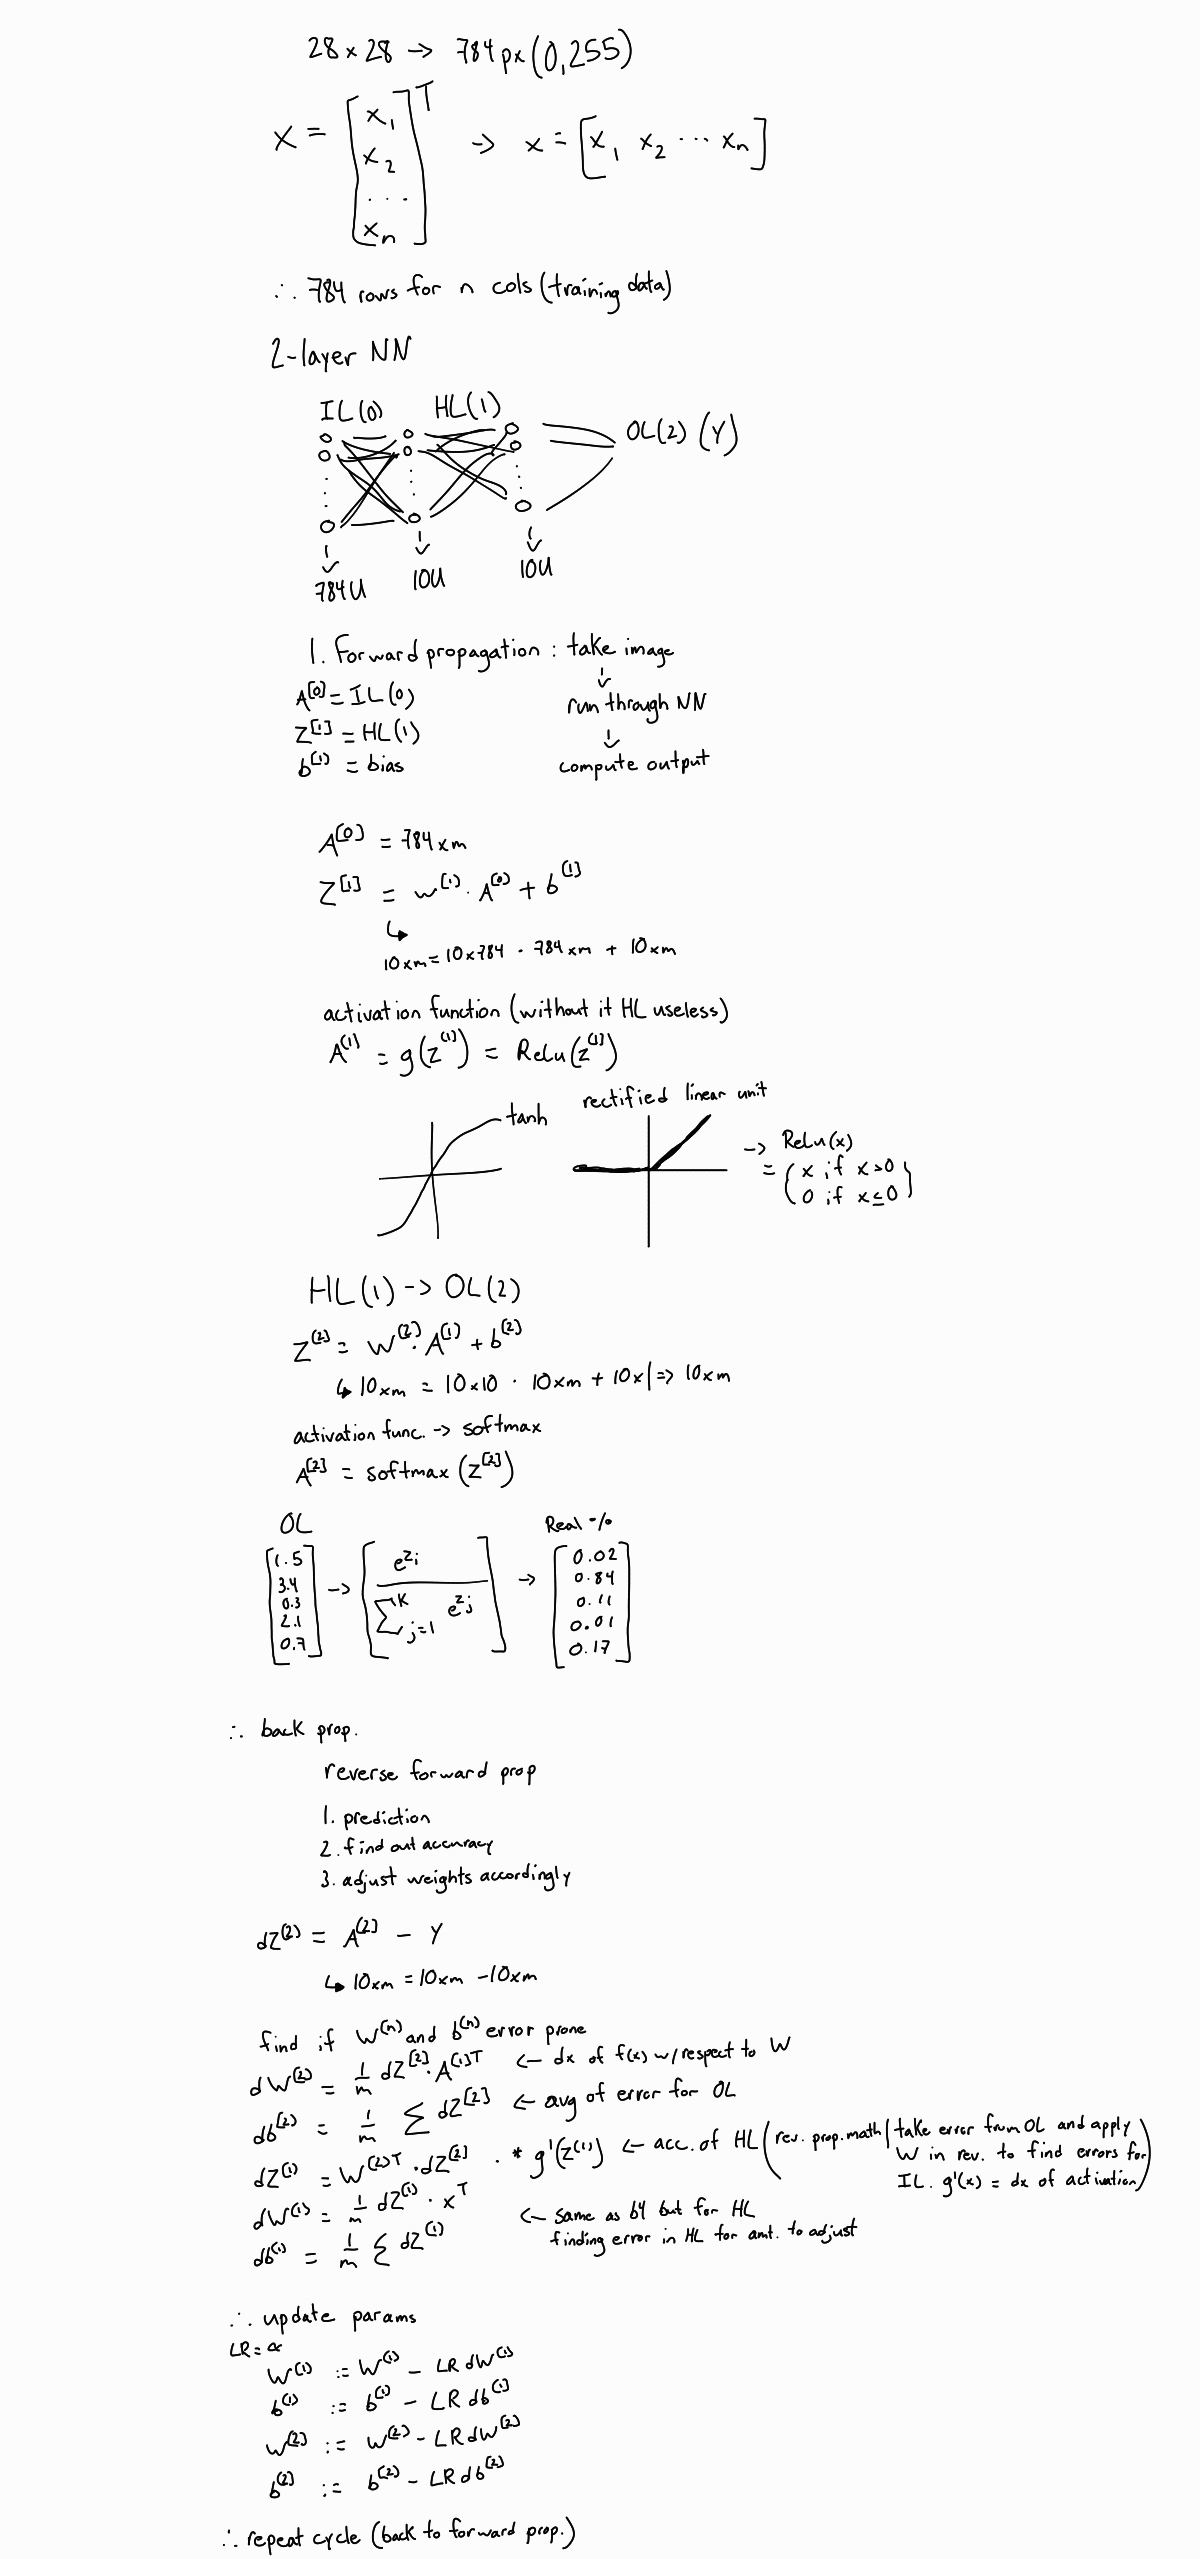 28 x 28 -> 784 px (0,255)
X = [x1 x2 ... xn]^T -> x = [x1 x2 ... xn]
∴ 784 rows for n cols (training data)
2-layer NN
IL(0) HL(1) OL(2) (Y)
784U 10U 10U
1. Forward propagation : take image
A^[0] = IL(0) run through NN
Z^[1] = HL(1)
b^(1) = bias compute output
A^[0] = 784 x m
Z^[1] = w^(1) · A^(0) + b^[1]
↳
10 x m = 10 x 784 · 784 x m + 10 x m
activation function (without it HL useless)
A^(1) = g(z^(1)) = Relu(z^(1))
tanh rectified linear unit
-> Relu(x)
= (x if x>0
0 if x≤0)
HL(1) -> OL(2)
Z^(2) = W^(2) · A^(1) + b^(2)
↳ 10xm = 10x10 · 10xm + 10x1 => 10xm
activation func. -> softmax
A^[2] = softmax (Z^[2])
OL Real %
[1.5 3.4 0.3 2.1 0.7] -> [e^zi / ∑ K j=1 e^zj] -> [0.02 0.84 0.11 0.01 0.17]
∴ back prop.
reverse forward prop
1. prediction
2. find out accuracy
3. adjust weights accordingly
dZ^(2) = A^(2) - Y
↳ 10xm = 10xm - 10xm
find if W^(n) and b^(n) error prone
dW^(2) = 1/m dZ^[2] · A^(1)T <- dx of f(x) w/respect to W
db^(2) = 1/m ∑ dZ^[2] <- avg of error for OL
dZ^(1) = W^(2)T · dZ^[2] · * g'(Z^(1)) <- acc. of HL (rev. prop. math | take error from OL and apply
W in rev. to find errors for
IL. g'(x) = dx of activation)
dW^(1) = 1/m dZ^(1) · x^T <- same as b4 but for HL
finding error in HL for amt. to adjust
db^(1) = 1/m ∑ dZ^(1)
∴ update params
LR = α
W^(1) := W^(1) - LR dW^(1)
b^(1) := b^(1) - LR db^(1)
W^(2) := W^(2) - LR dW^(2)
b^(2) := b^(2) - LR db^(2)
∴ repeat cycle (back to forward prop.)